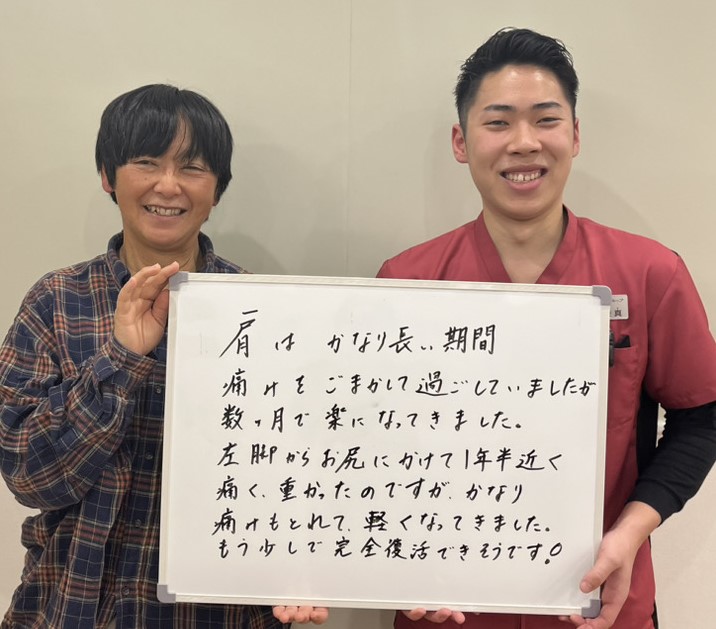 肩は かなり長い期間
痛けをごまかして過ごしていましたが
数ヶ月で楽になってきました。
左脚からお尻にかけて1年半近く
痛く、重かったのですが、かなり
痛けもとれて、軽くなってきました。
もう少しで完全復活できそうです!